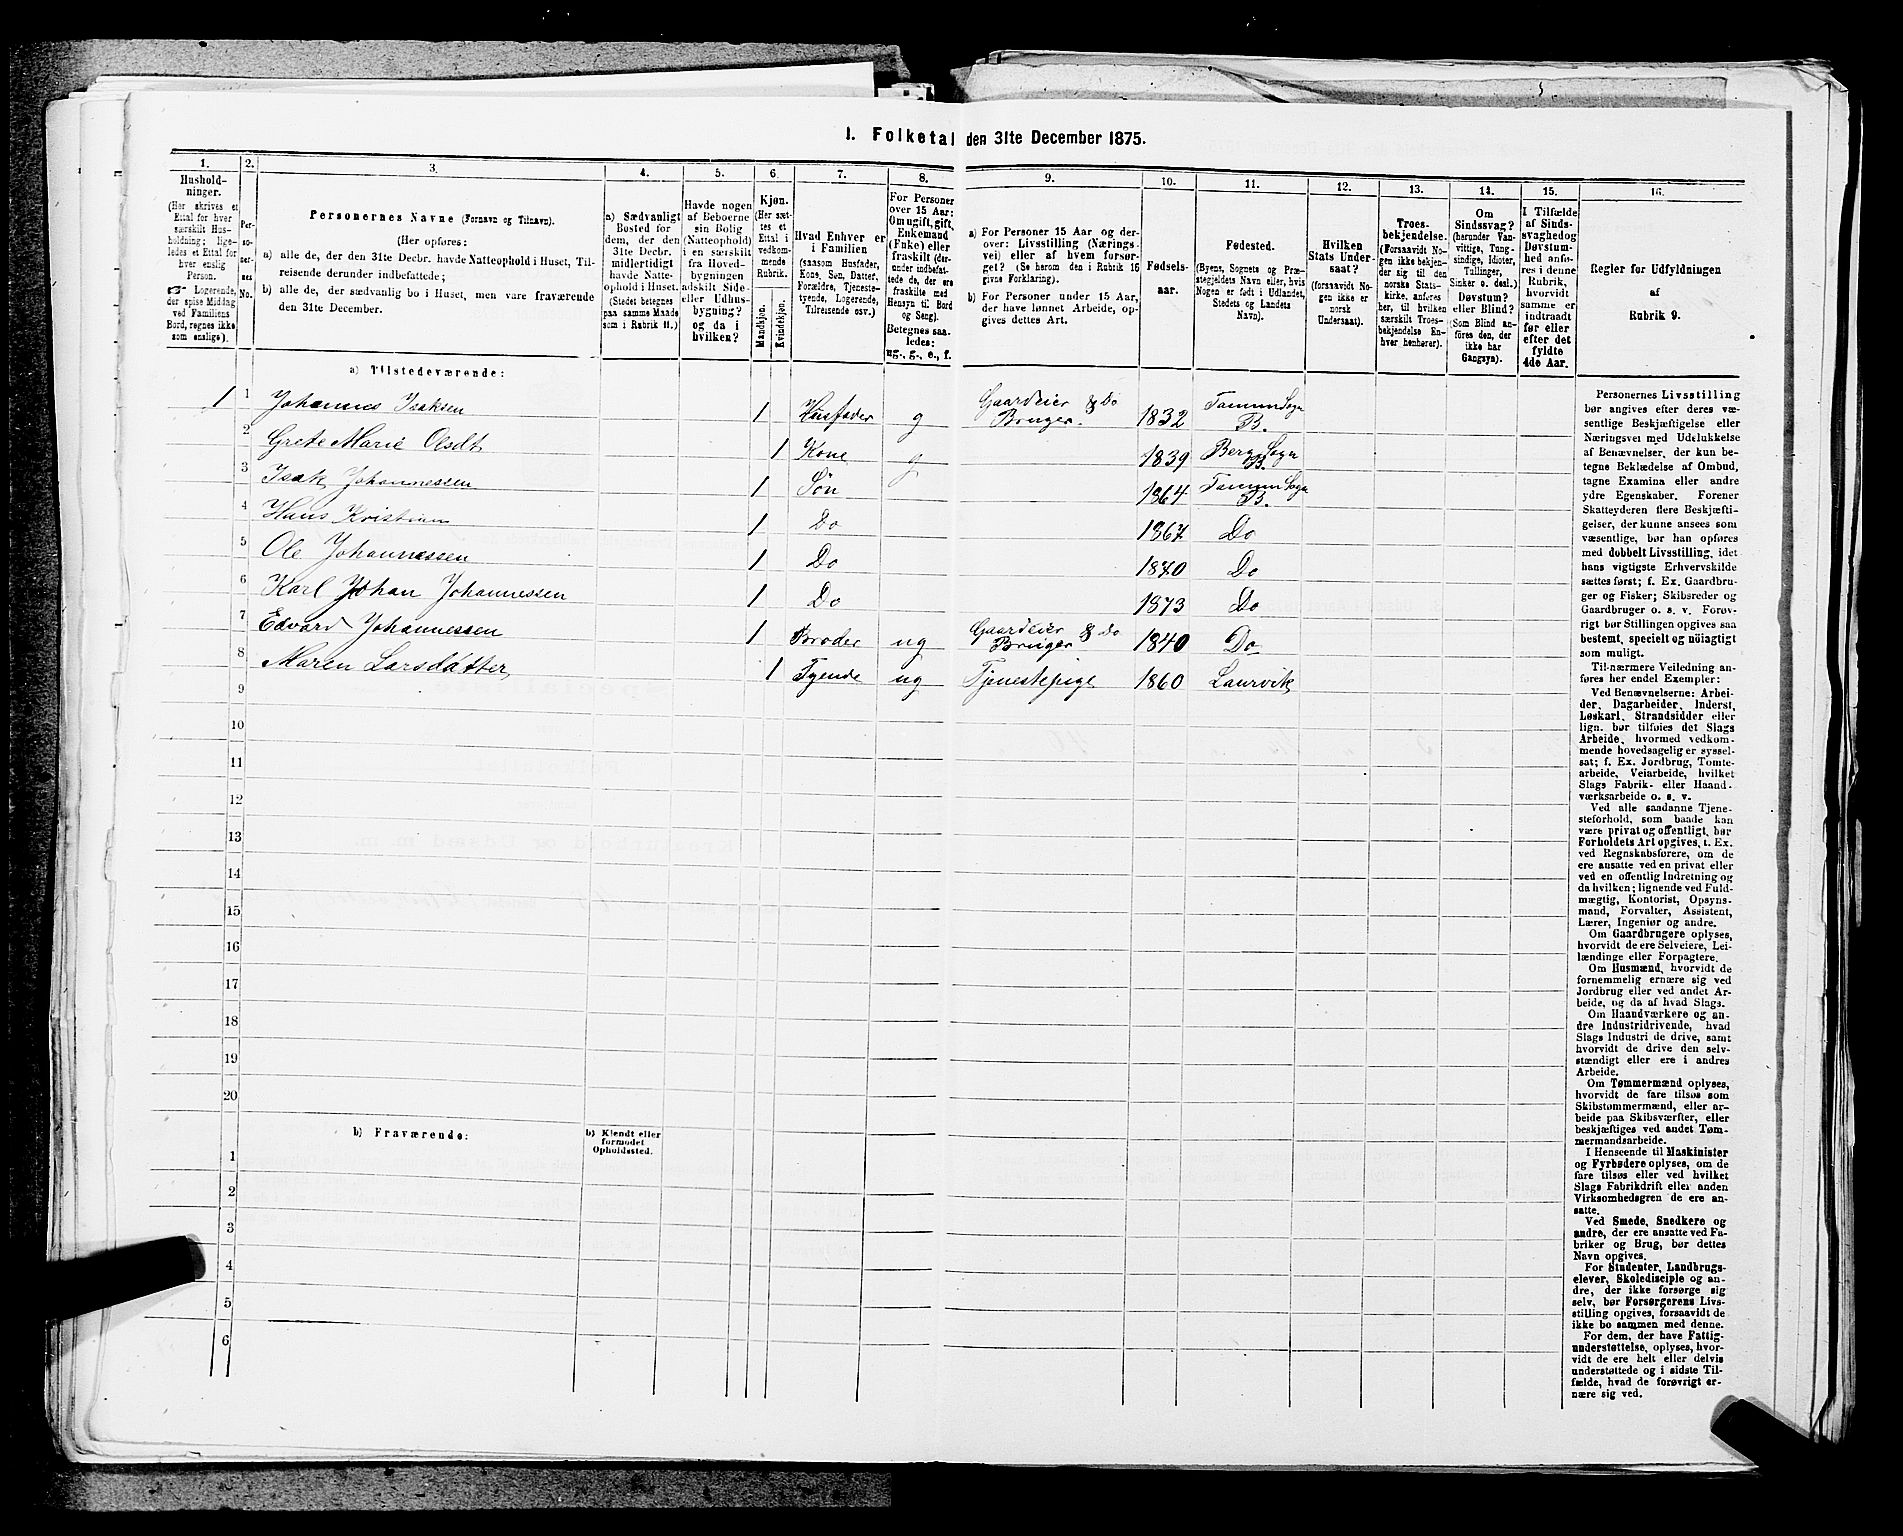 1. Folketal den 31te December 1875.
1.
Hushold-
ninger.
(Her skrives et
Ettal for hver
særskilt Hus-
holdning; lige-
ledes et Ettal for
hver enslig
Person.
☞ Logerende,
der spise Middag
ved Familiens
Bord, regnes ikke
som enslige).
2.
Per-
so-
ner-
nes
No.
3.
Personernes Navne (Fornavn og Tilnavn).
(Her opføres:
a) alle de, der den 31te Decbr. havde Natteophold i Huset, Til-
reisende derunder indbefattede;
b) alle de, der sædvanlig bo i Huset, men vare fraværende
den 31te December.
4.
a) Sædvanligt
Bosted for
dem, der den
31te Decbr.
midlertidigt
havde Natte-
ophold i Huset.
(Stedet betegnes
paa samme Maade
som i Rubrik 11.)
5.
Havde nogen
af Beboerne
sin Bolig
(Natteophold)
i en særskilt
fra Hoved-
bygningen
adskilt Side-
eller Udhus-
bygning?
og da i
hvilken?
6.
Kjøn.
(Her sæt-
tes et
Ettal i
vedkom-
mende
Rubrik.
Mandkjøn.
Kvindekjøn.
7.
Hvad Enhver er
i Familien
(saasom Husfader,
Kone, Søn, Datter,
Forældre, Tjeneste-
tyende, Logerende,
Tilreisende osv.)
8.
For Personer
over 15 Aar:
Om ugift, gift,
Enkemand
(Enke) eller
fraskilt (der-
under indbefat-
tede de, der ere
fraskilte med
Hensyn til Bord
og Seng).
Betegnes saa-
ledes:
ug., g., e., f.
9.
a) For Personer 15 Aar og der-
over: Livsstilling (Nærings-
vei) eller af hvem forsør-
get? (Se herom den i Rubrik 16
givne Forklaring).
b) For Personer under 15 Aar,
der have lønnet Arbeide, op-
gives dettes Art.
10.
Fødsels-
aar.
11.
Fødested.
(Byens, Sognets og Præ-
stegjeldets Navn eller, hvis
Nogen er født i Udlandet,
Stedets og Landets
Navn).
12.
Hvilken
Stats Under-
saat?
(forsaavidt No-
gen ikke er
norsk
Undersaat).
13.
Troes-
bekjendelse.
(Forsaavidt No-
gen ikke bekjen-
der sig til den
norske Stats-
kirke, anføres
her, til hvilken
særskilt Troes-
bekjendelse En-
hver henhører).
14.
Om
Sindssvag?
(herunder Van-
vittige, Tung-
sindige, Idioter,
Tullinger,
Sinker o. desl.)
Døvstum?
eller Blind?
(Som Blind an-
føres den, der
ikke har
Gangsyn).
15.
I Tilfælde
af Sinds-
svaghed og
Døvstum-
hed anfø-
res i denne
Rubrik,
hvorvidt
samme er
indtraadt
før eller
efter det
fyldte
4de Aar.
16.
Regler for Udfyldningen
af
Rubrik 9.
a) Tilstedeværende:
1 1 Johannes Isaksen 1 Husfader g Gaardeier & do Bruger. 1832 Tanum Sogn B.
2 Grete Marie Olsdt 1 Kone g 1839 Berg Sogn B.
3 Isak Johannessen 1 Søn 1864 Tanum Sogn B.
4 Hans Kristian 1 Do 1867 Do
5 Ole Johannessen 1 Do 1870 Do
6 Karl Johan Johannessen 1 Do 1873 Do
7 Edvard Johannessen 1 Broder ug Gaardeier & do Bruger 1840 Do
8 Maren Larsdatter 1 Tyende ug Tjenestepige 1860 Laurvik
9
10
11
12
13
14
15
16
17
18
19
20
b) Fraværende:
b) Kjendt eller
formodet
Opholdssted.
1
2
3
4
5
6
Personernes Livsstilling
bør angives efter deres væ-
sentlige Beskjæftigelse eller
Næringsvei med Udelukkelse
af Benævnelser, der kun be-
tegne Beklædelse af Ombud,
tagne Examina eller andre
ydre Egenskaber. Forener
Skatteyderen flere Beskjæfti-
gelser, der kunne ansees som
væsentlige, bør han opføres
med dobbelt Livsstilling, idet
hans vigtigste Erhvervskilde
sættes først; f. Ex. Gaardbru-
ger og Fisker; Skibsreder og
Gaardbruger o. s. v. Forøv-
rigt bør Stillingen opgives saa
bestemt, specielt og nöiagtigt
som muligt.
Til nærmere Veiledning an-
føres her endel Exempler:
Ved Benævnelserne: Arbei-
der, Dagarbeider, Inderst,
Løskarl, Strandsidder eller
lign. bør tilføies det Slags
Arbeide, hvormed vedkom-
mende hovedsagelig er syssel-
sat; f. Ex. Jordbrug, Tomte-
arbeide, Veiarbeide, hvilket
Slags Fabrik- eller Haand-
værksarbeide o. s. v.
Ved alle saadanne Tjene-
steforhold, som baade kan
være privat og offentligt, bør
Forholdets Art opgives, t. Ex.
ved Regnskabsførere, om de
ere ansatte ved en privat eller
ved en offentlig Indretning og
da hvilken; lignende ved Fuld-
mægtig, Kontorist, Opsyns-
mand, Forvalter, Assistent,
Lærer, Ingeniør og andre.
Om Gaardbrugere oplyses,
hvorvidt de ere Selveiere, Lei-
lændinge eller Forpagtere.
Om Husmænd, hvorvidt de
fornemmelig ernære sig ved
Jordbrug eller ved andet Ar-
beide, og da af hvad Slags.
Om Haandværkere og an-
dre Industridrivende, hvad
Slags Industri de drive, samt
hvorvidt de drive den selv-
stændigt eller ere i andres
Arbeide.
Om Tømmermænd oplyses,
hvorvidt de fare tilsøs som
Skibstømmermænd, eller ar-
beide paa Skibsværfter, eller
beskjæftiges ved andet Tøm-
mermandsarbeide.
I Henseende til Maskinister
og Fyrbødere oplyses, om de
fare tilsøs eller ved hvilket
Slags Fabrikdrift eller anden
Virksomhedsgren de ere an-
satte.
Ved Smede, Snedkere og
andre, der ere ansatte ved Fa-
briker og Brug, bør dettes
Navn opgives.
For Studenter, Landbrugs-
elever, Skoledisciple og an-
dre, der ikke forsørge sig
selv, bør Forsørgerens Livs-
stilling opgives, forsaavidt de
ikke bo sammen med denne.
For dem, der have Fattig-
understøttelse, oplyses, hvor-
vidt de ere helt eller delvis
understøttede og i sidste Til-
fælde, hvad de forøvrigt er-
nære sig ved.